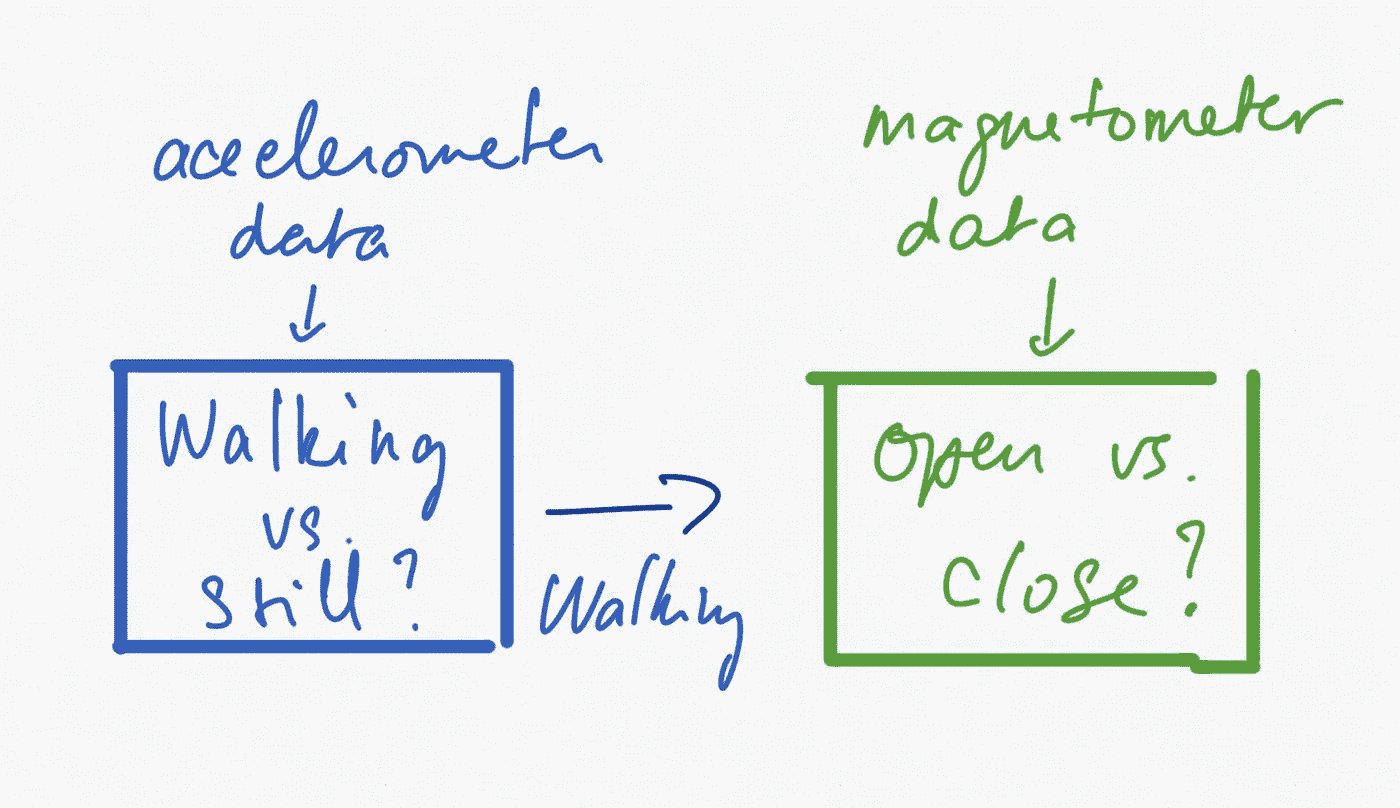 acelerometer
data
Walking
vs.
still?
Walking
magnetometer
data
Open vs.
close?